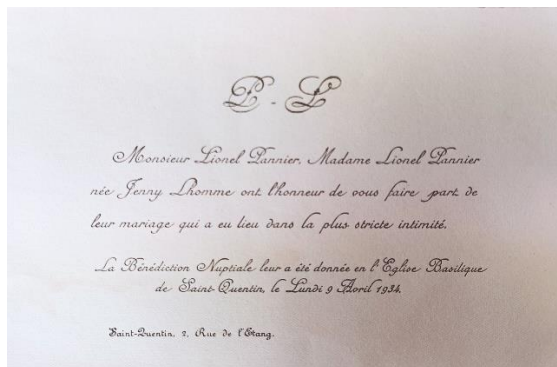 P - L
Monsieur Lionel Pannier, Madame Lionel Pannier
née Jenny Lhomme ont l'honneur de vous faire part de
leur mariage qui a eu lieu dans la plus stricte intimité.
La Bénédiction Nuptiale leur a été donnée en l'Eglise Basilique
de Saint-Quentin, le Lundi 9 Avril 1934.
Saint-Quentin, 2, Rue de l'Etang.